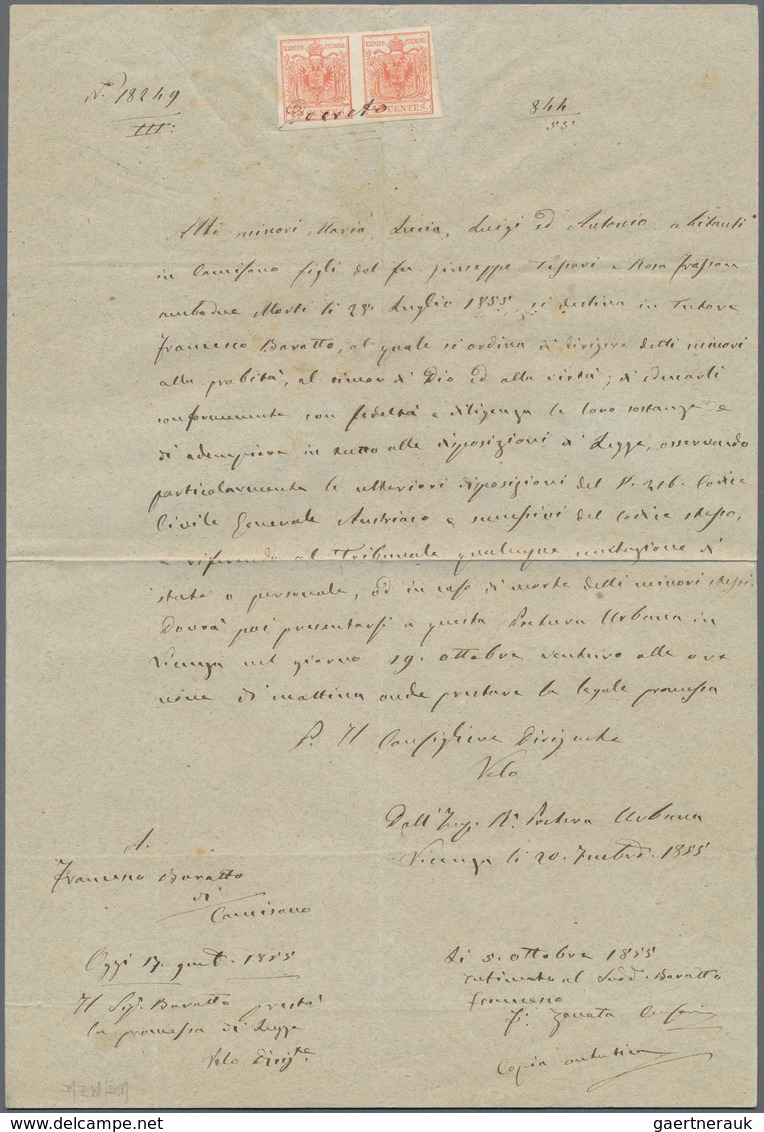 Nº 18249
III:
KKPOST-STEMPEL KKPOST-STEMPEL
15 CENTES. 15 CENTES.
Decreto
844
55
Alli minori Maria, Lucia, Luigi ed Antonio abitanti
in Camisano figli del fu Giuseppe Tessari e Rosa Frasson
ambedue Morti li 28 Luglio 1855, si destina in Tutore
Francesco Baratto, al quale si ordina di dirigere detti minori
alla probità, al timor di Dio ed alla virtù; di educarli
conformemente con fedeltà e diligenza le loro sostanze e
di adempiere in tutto alle disposizioni di Legge, osservando
particolarmente le ulteriori disposizioni del §. 216. Codice
Civile Generale Austriaco e successivi del Codice stesso,
e riferendo al Tribunale qualunque mutazione di
stato o personale, od in caso di morte delli minori stessi.
Dovrà poi presentarsi a questa Pretura Urbana in
Vicenza nel giorno 19. ottobre venturo alle ore
nove di mattina onde prestare la legale promessa
P. Il Consigliere Dirigente
Velo
Dall' Imp. R. Pretura Urbana
Vicenza li 20. 1855
A.
Francesco Baratto
di
Camisano
Oggi 17. 1855
Il Sig. Baratto prestò
la promessa di Legge
Velo Dirigte.
Li 5. ottobre 1855
intimato al Baratto
Francesco
F. Zanata
Copia autentica
gaertnerauk